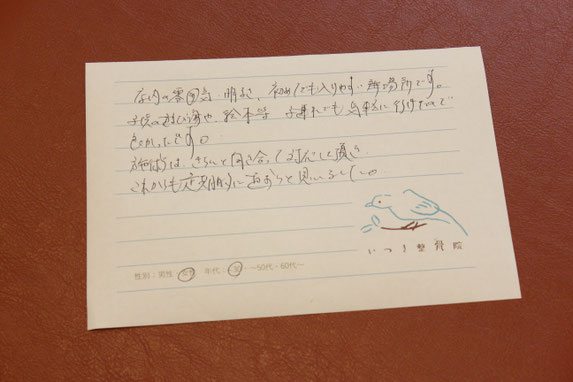 店内の雰囲気 明るく、初めてでも入りやすい 場所です。
子供の遊び場や、絵本等 子連れでも気軽に行けたので
良かったです。
施術は、きちんと向き合って対応して頂き
これからも定期的に通おうと思いました。
いつき整骨院
性別：男性 女性 年代： ・～50代・60代～